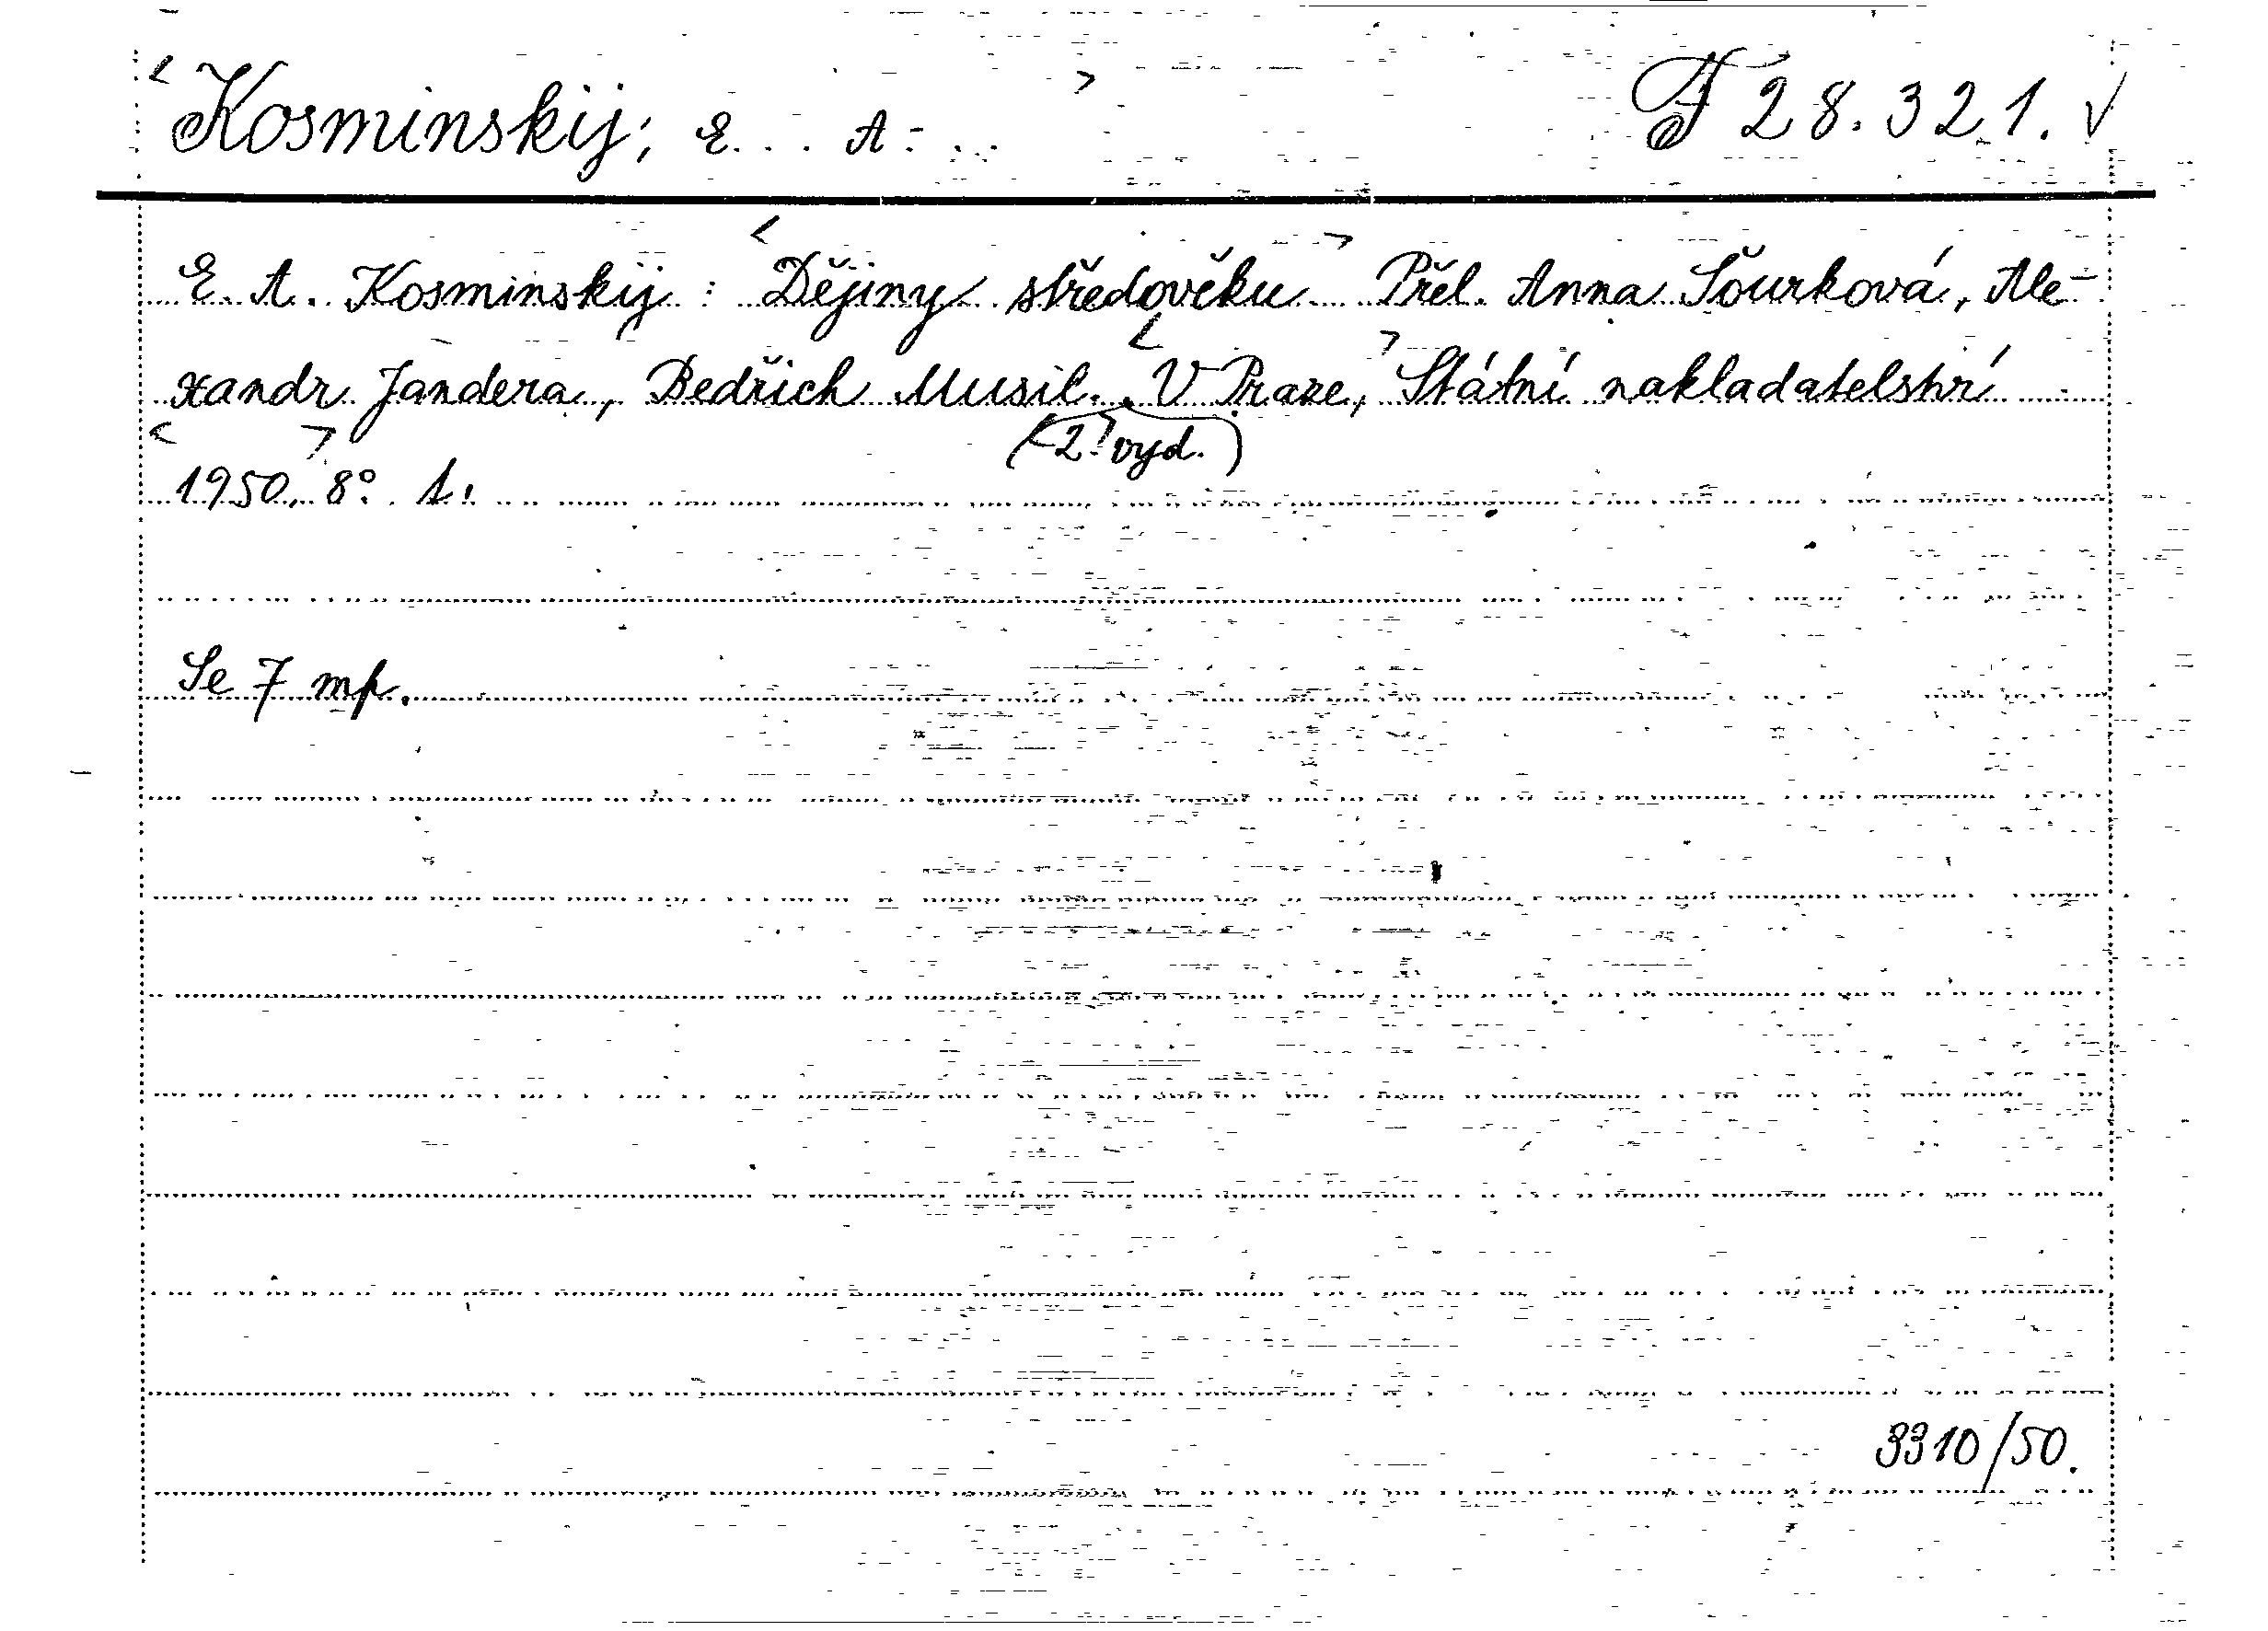 <Kosminskij, E... A...> F 28.321. √
E. A. Kosminskij: <Dějiny středověku> Přel. Anna Šourková, Ale-
xandr Jandera, Bedřich Musil. <V Praze,> Státní nakladatelství
(<2.> vyd.)
<1950.> 8°. 1.
Se 7 mp.
3310/50.